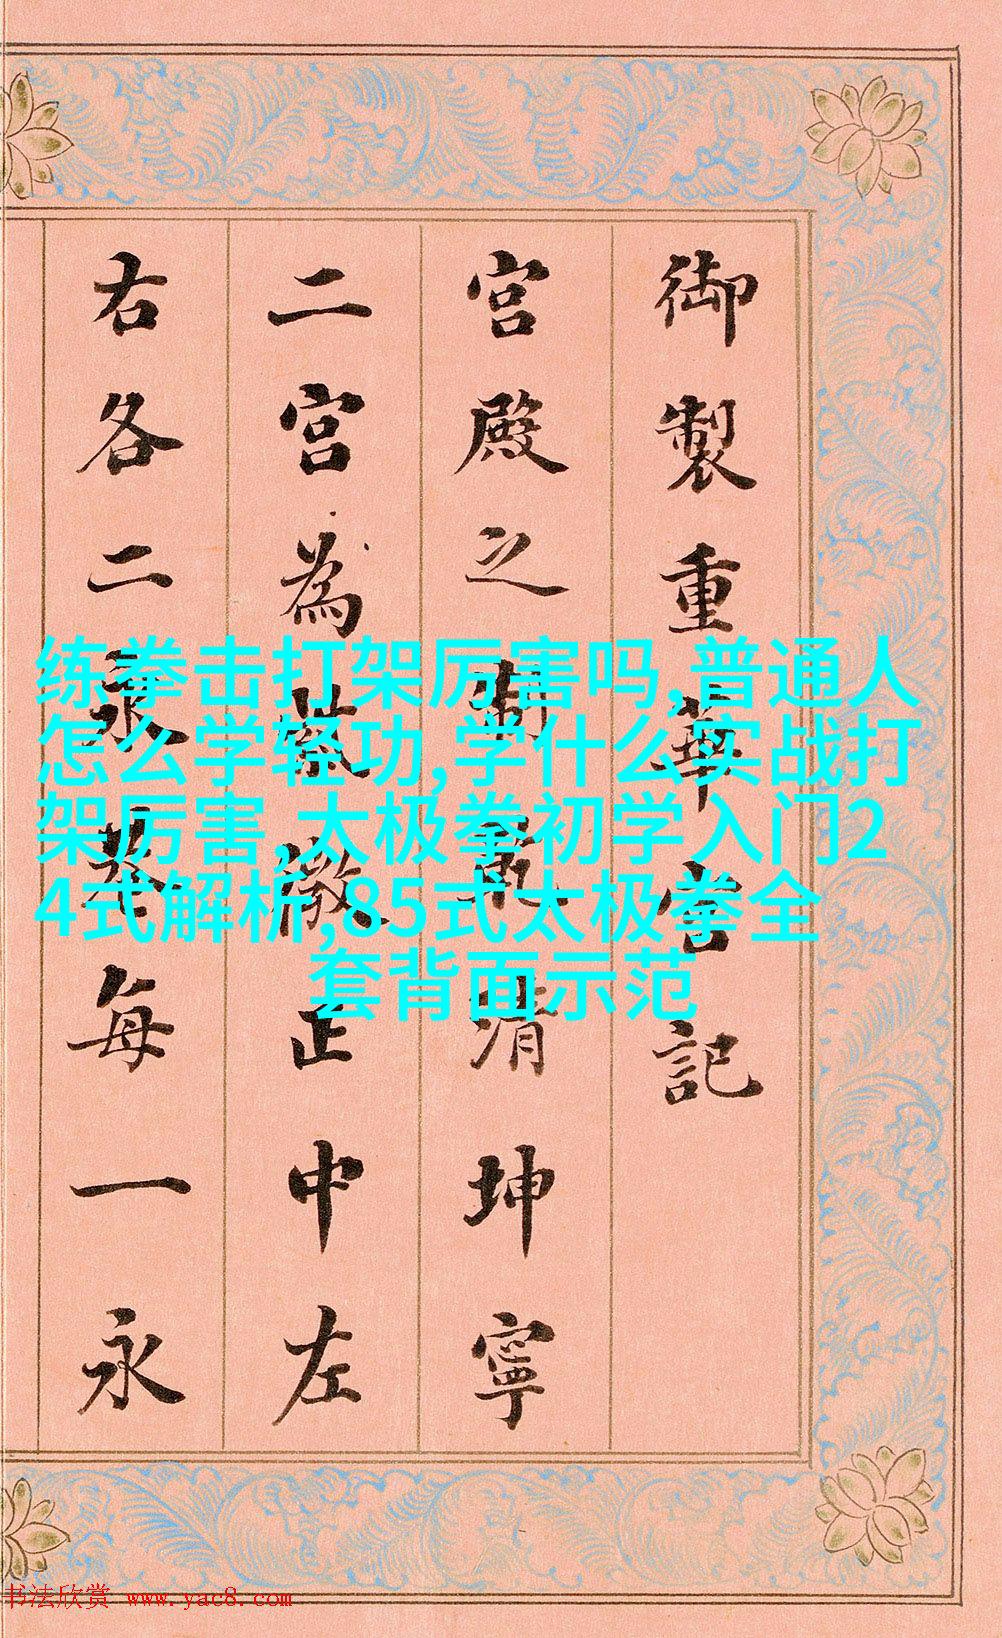 御製重華宮記
宮殿之制乾清坤寧
二宮為紫微正中左
右各二永巷每一永
练拳击打架厉害吗,普通人
怎么学轻功,学什么实战打
架厉害,太极拳初学入门2
4式解析,85式太极拳全
套背面示范
书法欣赏 www.yac8.com